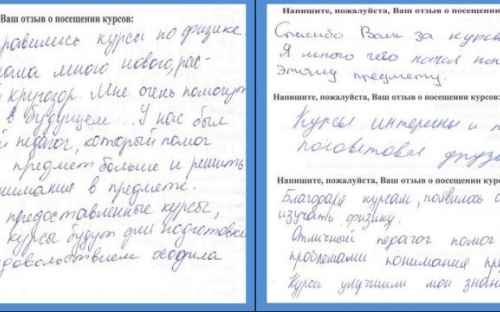 Ваш отзыв о посещении курсов:
равились курсы по физике.
нала много нового, рас-
й кругозор. Мне очень помогут
в будущем... У нас был
й педагог, который помог
предмет больше и решить
нимания в предмете.
предоставленные курсы,
курсы будут для подготовки
довольствием ходила
Напишите, пожалуйста, Ваш отзыв о посещени
Спасибо Вам за курсы
Я много чего начал пон
этому предмету.
Напишите, пожалуйста, Ваш отзыв о посещении курсов:
Курсы интерны и п
посоветовал друзь
Напишите, пожалуйста, Ваш отзыв о посещении курс
Благодаря курсам, появилась
изучать физику.
Отличный педагог помог
проблемами понимания пр
Курсы улучшили мои знан